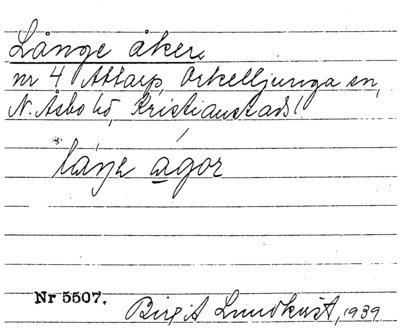 Långe åker
nr 4 Attarp, Örkelljunga sn,
N. Åsbo hd, Kristianstads l
låŋe agor
Nr 5507.
Birgit Lundkvist, 1939